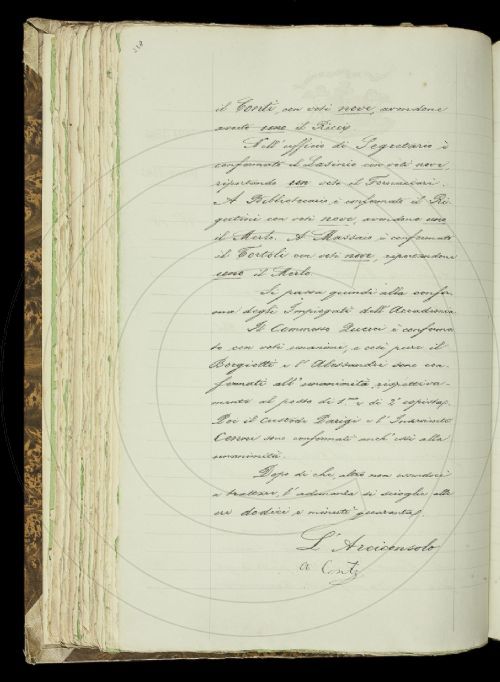 il Conti, con voti nove, avendone
avuto uno il Ricci.
Nell'ufficio di Segretario è
confermato il Lasinio con voti nove,
riportando un voto il Fornaciari.
A Bibliotecario, è confermato il Ri-
gutini con voti nove, avendone uno
il Merlo. A Massaio, è confermato
il Tortoli con voti nove, riportandone
uno il Merlo.
Si passa quindi alla confer-
ma degli Impiegati dell'Accademia.
Il Commesso è conferma-
to con voti unanimi, e così pure il
Borgiotti e l'Alessandri sono con-
fermati all'unanimità, rispettiva-
mente al posto di 1.mo e di 2.º copista.
Poi il Custode Parigi e l'Inserviente
sono confermati anch'essi alla
unanimità.
Dopo di che, altro non essendovi
a trattare, l'adunanza si scioglie alle
ore dodici e minuti quaranta.
L'Arciconsolo
A. Conti